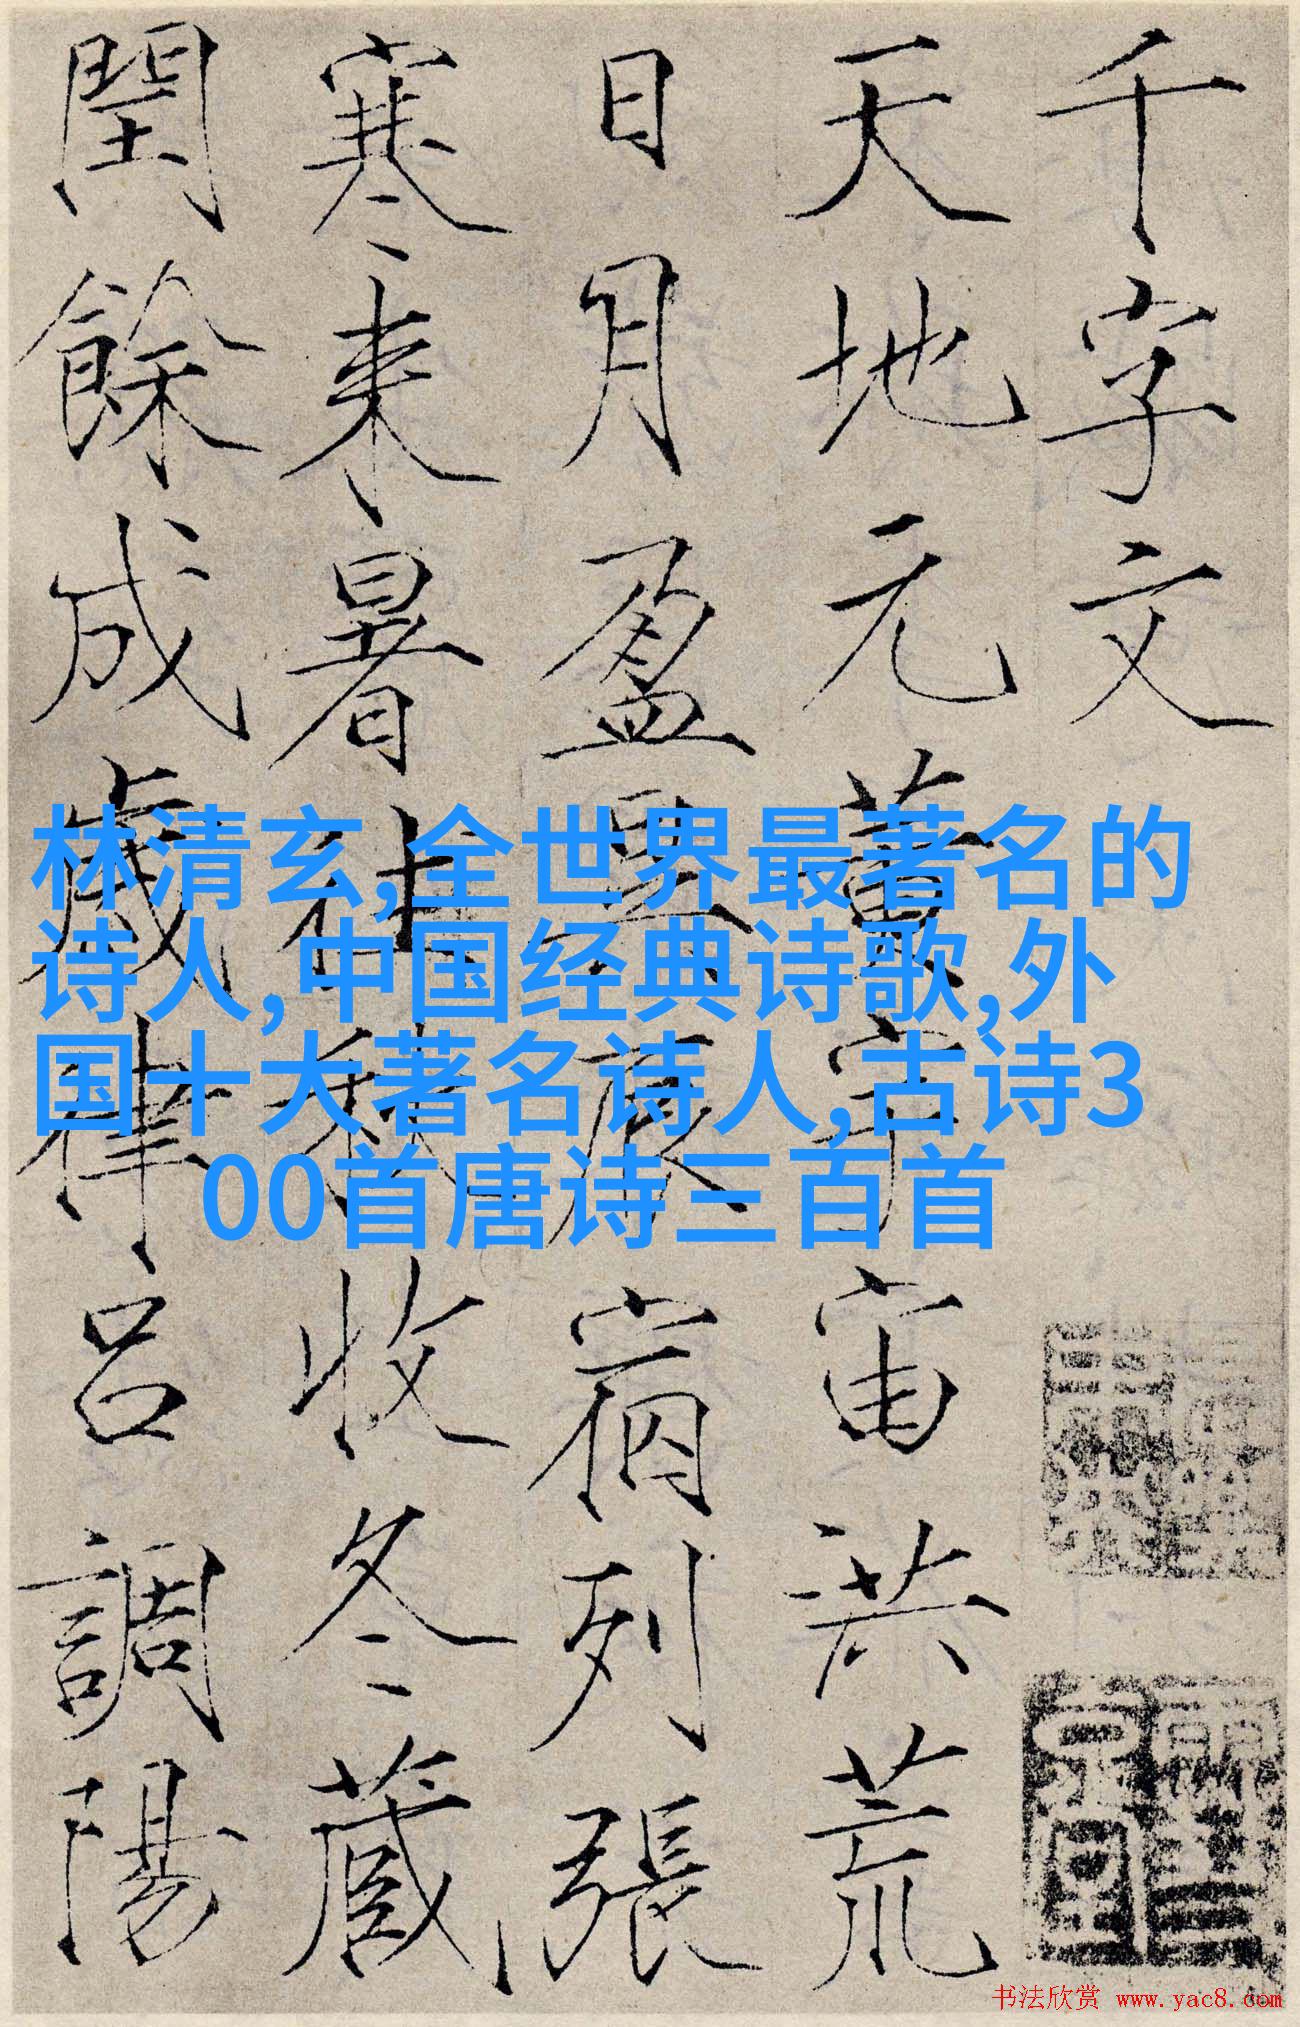 千字文
天地元黃宇宙洪荒
日月盈昃辰宿列張
寒来暑往秋收冬藏
閏餘成歲律吕調陽
林清玄,全世界最著名的
诗人,中国经典诗歌,外
国十大著名诗人,古诗3
00首唐诗三百首
书法欣赏 www.yac8.com